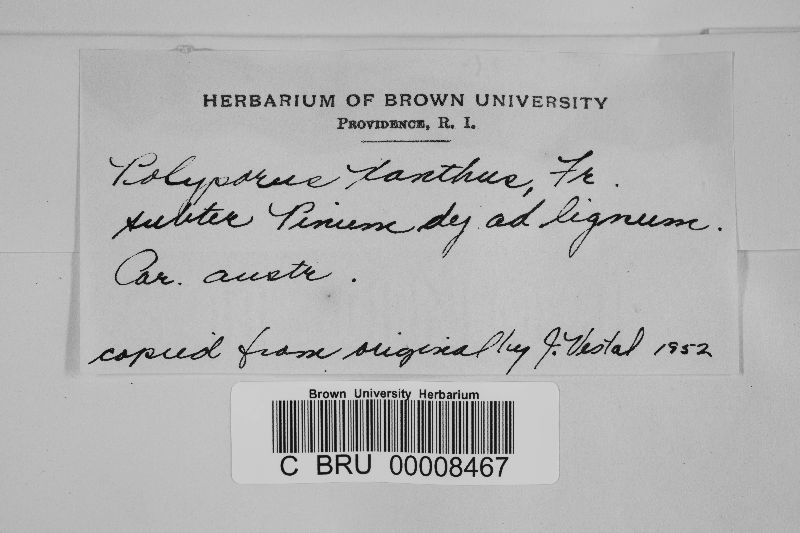 HERBARIUM OF BROWN UNIVERSITY
PROVIDENCE, R. I.
Polyporus Xanthus, Fr.
subter Pinum dej ad lignum.
Car. austr.
copied from original by J. Vestal 1952
Brown University Herbarium
C BRU 00008467